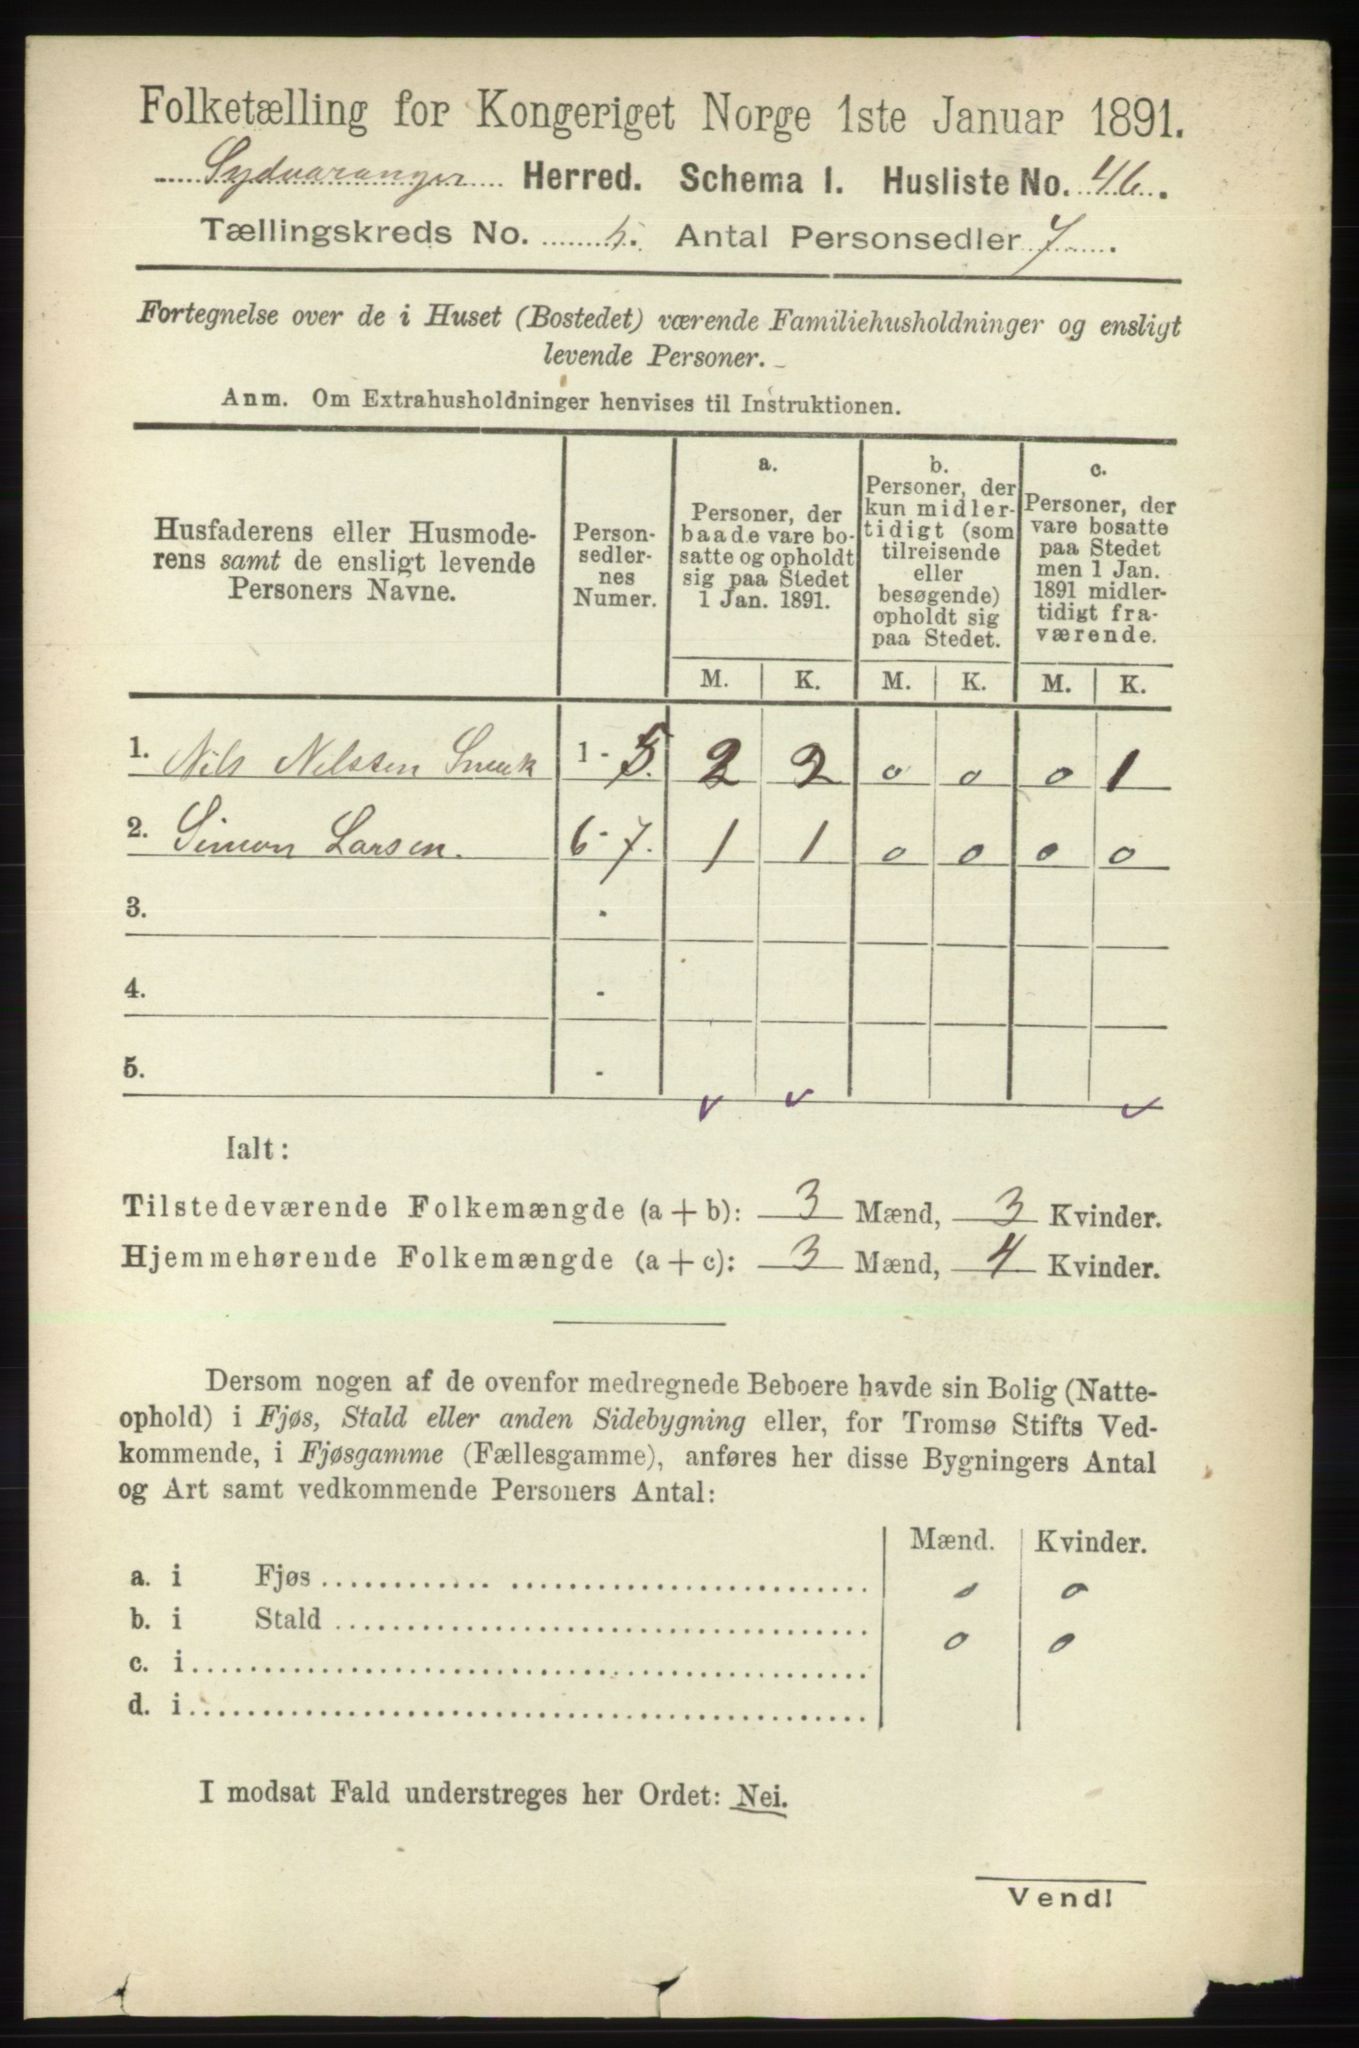 Folketælling for Kongeriget Norge 1ste Januar 1891.
Sydvaranger Herred. Schema I. Husliste No. 46.
Tællingskreds No. 5. Antal Personsedler 7.
Fortegnelse over de i Huset (Bostedet) værende Familiehusholdninger og ensligt
levende Personer.
Anm. Om Extrahusholdninger henvises til Instruktionen.
Husfaderens eller Husmode-
rens samt de ensligt levende
Personers Navne.
Person-
sedler-
nes
Numer.
a.
Personer, der
baade vare bo-
satte og opholdt
sig paa Stedet
1 Jan. 1891.
b.
Personer, der
kun midler-
tidigt (som
tilreisende
eller
besøgende)
opholdt sig
paa Stedet.
c.
Personer, der
vare bosatte
paa Stedet
men 1 Jan.
1891 midler-
tidigt fra-
værende.
M. K. M. K. M. K.
1. Nils Nilssen 1 - 5. 2 2 0 0 0 1
2. Simon Larsen. 6 - 7. 1 1 0 0 0 0
3. -
4. -
5. -
Ialt:
Tilstedeværende Folkemængde (a + b): 3 Mænd, 3 Kvinder.
Hjemmehørende Folkemængde (a + c): 3 Mænd, 4 Kvinder.
Dersom nogen af de ovenfor medregnede Beboere havde sin Bolig (Natte-
ophold) i Fjøs, Stald eller anden Sidebygning eller, for Tromsø Stifts Ved-
kommende, i Fjøsgamme (Fællesgamme), anføres her disse Bygningers Antal
og Art samt vedkommende Personers Antal:
Mænd. Kvinder.
a. i Fjøs 0 0
b. i Stald 0 0
c. i
d. i
I modsat Fald understreges her Ordet: Nei.
Vend!